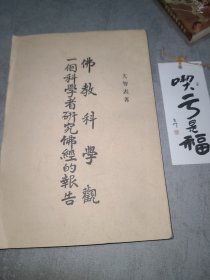 尢智表著
佛教科學觀
一個科學者研究佛經的報告
喫亏是福